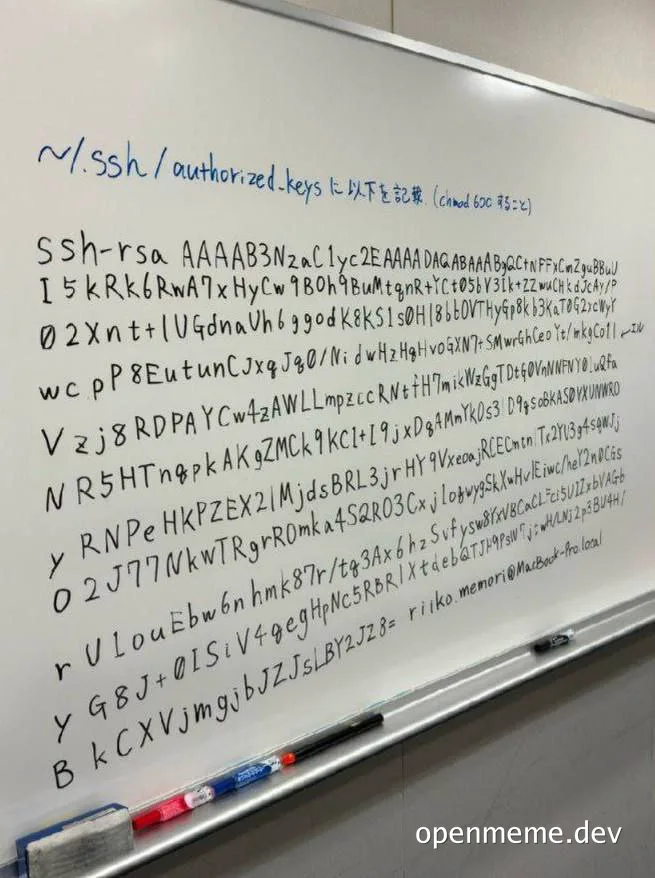 ~/.ssh/authorized_keys に以下を記載. (chmod 600 すること)
ssh-rsa AAAAB3NzaC1yc2EAAAADAQABAAABgQCtNFFxCmZguBBuU
I5kRk6RwA7xHyCw9BOh9BuMtqnR+YCt05bV3Ik+ZZwuCHkdJcAy/P
02Xnt+lUGdnaUh6ggodK8KS1s0H18bbOVTHyGp8kb3KaT0G2xcWyY
wcpP8EutunCJxqJq0/NidwHzHgHvoGXN7+SMwrGhCeoYt/mkgCo1l
Vzj8RDPAYCw4zAWLLmpzccRNtfH7mikWzGgTDtG0VnNNFNY0luQfa
NR5HTnqpkAKgZMCk9KC1+I9jxDqAMmYkOs3lD9gsoBKAS0YXUNWRO
yRNPeHKPZEX2lMjdsBRL3jrHY9VxeoajRCECmtnlTc2YU3g4sqWJj
O2J77NkwTRgrROmka4S2RO3CxjlobwygSkXwHvlEiwc/heY2n0CGs
rU1ouEbw6nhmk87r/tg3Ax6hzSvfysw8YxVBCaCLFci5UIZxbVAGb
yG8J+0ISiV4gegHpNc5RbRlXtdebQTJh9PsW7jswH/LNj2p3BU4H/
BkCXVjmgjbJZJsLBY2JZ8= riiko.memori@MacBook-Pro.local
openmeme.dev